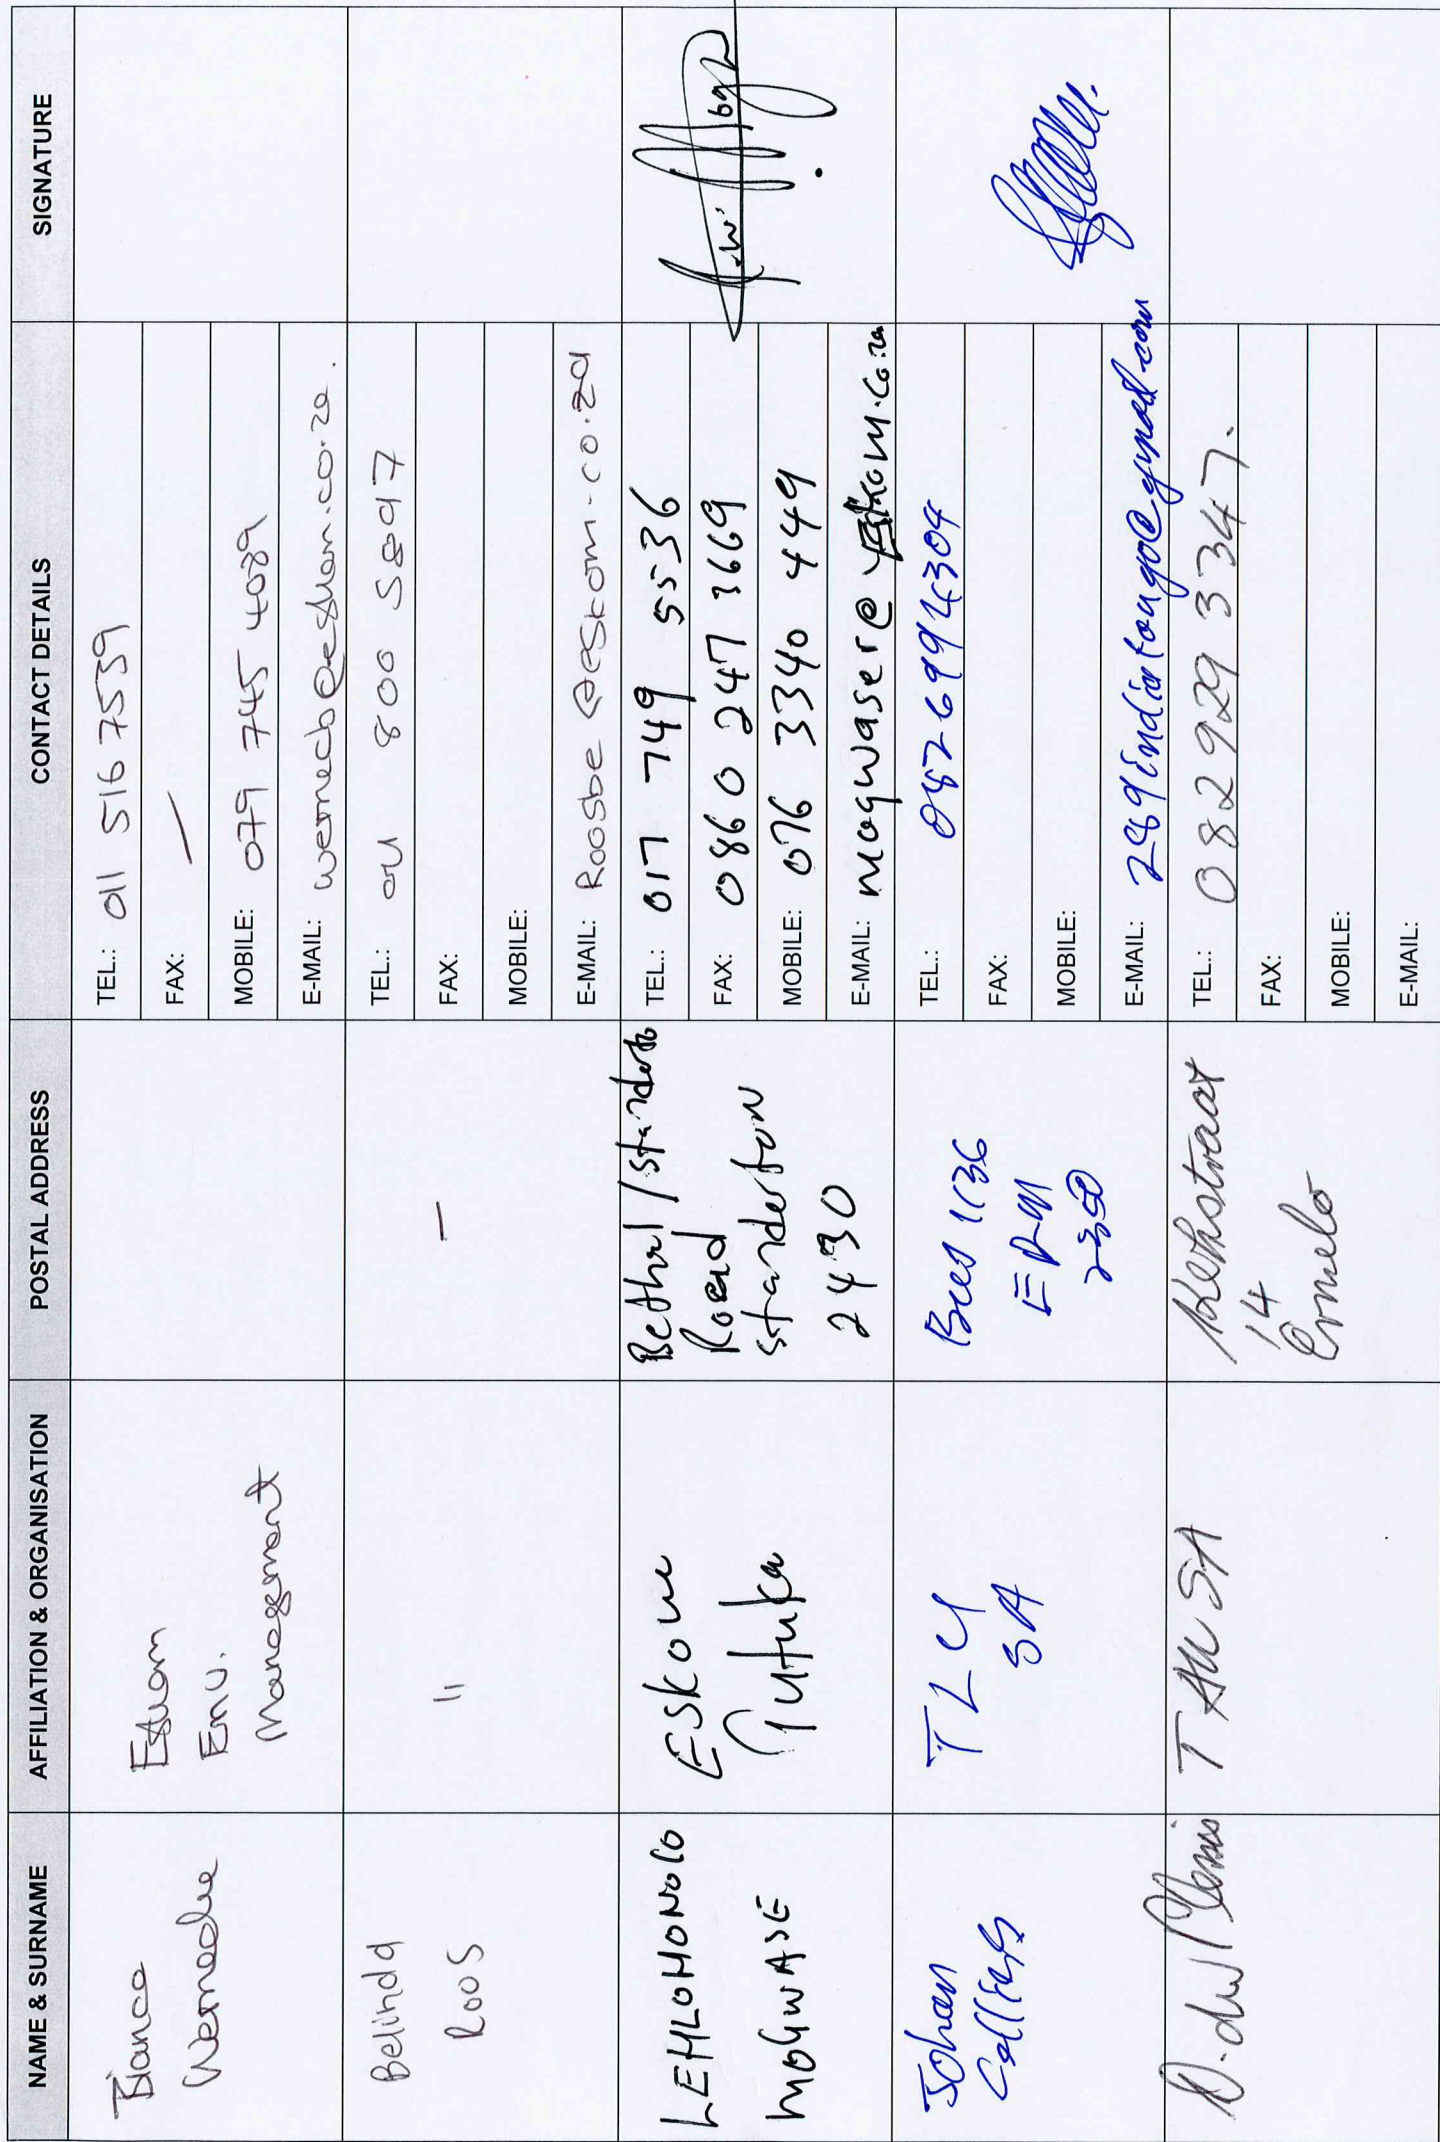 NAME & SURNAME AFFILIATION & ORGANISATION POSTAL ADDRESS CONTACT DETAILS SIGNATURE
Bianca
Wernecke
Eskom
Env.
Management
TEL.: 011 516 7539
FAX: —
MOBILE: 079 745 4089
E-MAIL: wernecb@eskom.co.za.
Belinda
Roos
"
—
TEL.: 011 800 5897
FAX:
MOBILE:
E-MAIL: Roosbe@eskom.co.za
LEHLOHONOLO
MOGWASE
Eskom
Tutuka
Bethal / standerto
Road
standerton
2430
TEL.: 017 749 5536
FAX: 0860 247 3669
MOBILE: 076 3340 449
E-MAIL: mogwaser@eskom.co.za
Johan
TLU
SA
1136
2350
TEL.: 0826994304
FAX:
MOBILE:
E-MAIL:
D. du Plessis
TAU SA
Kerkstraat
14
Ermelo
TEL.: 082 929 3347.
FAX:
MOBILE:
E-MAIL: